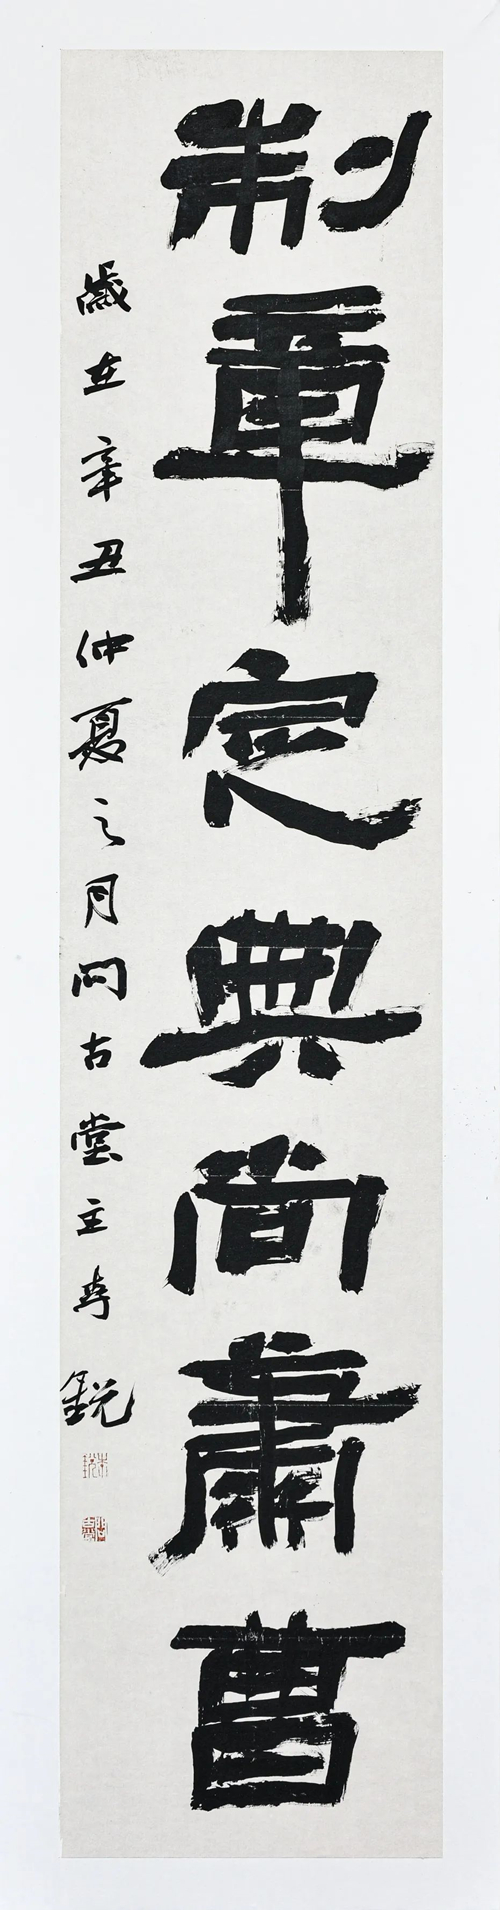 制章定典尚肅曹
歲在辛丑仲夏之月問古堂主李銳